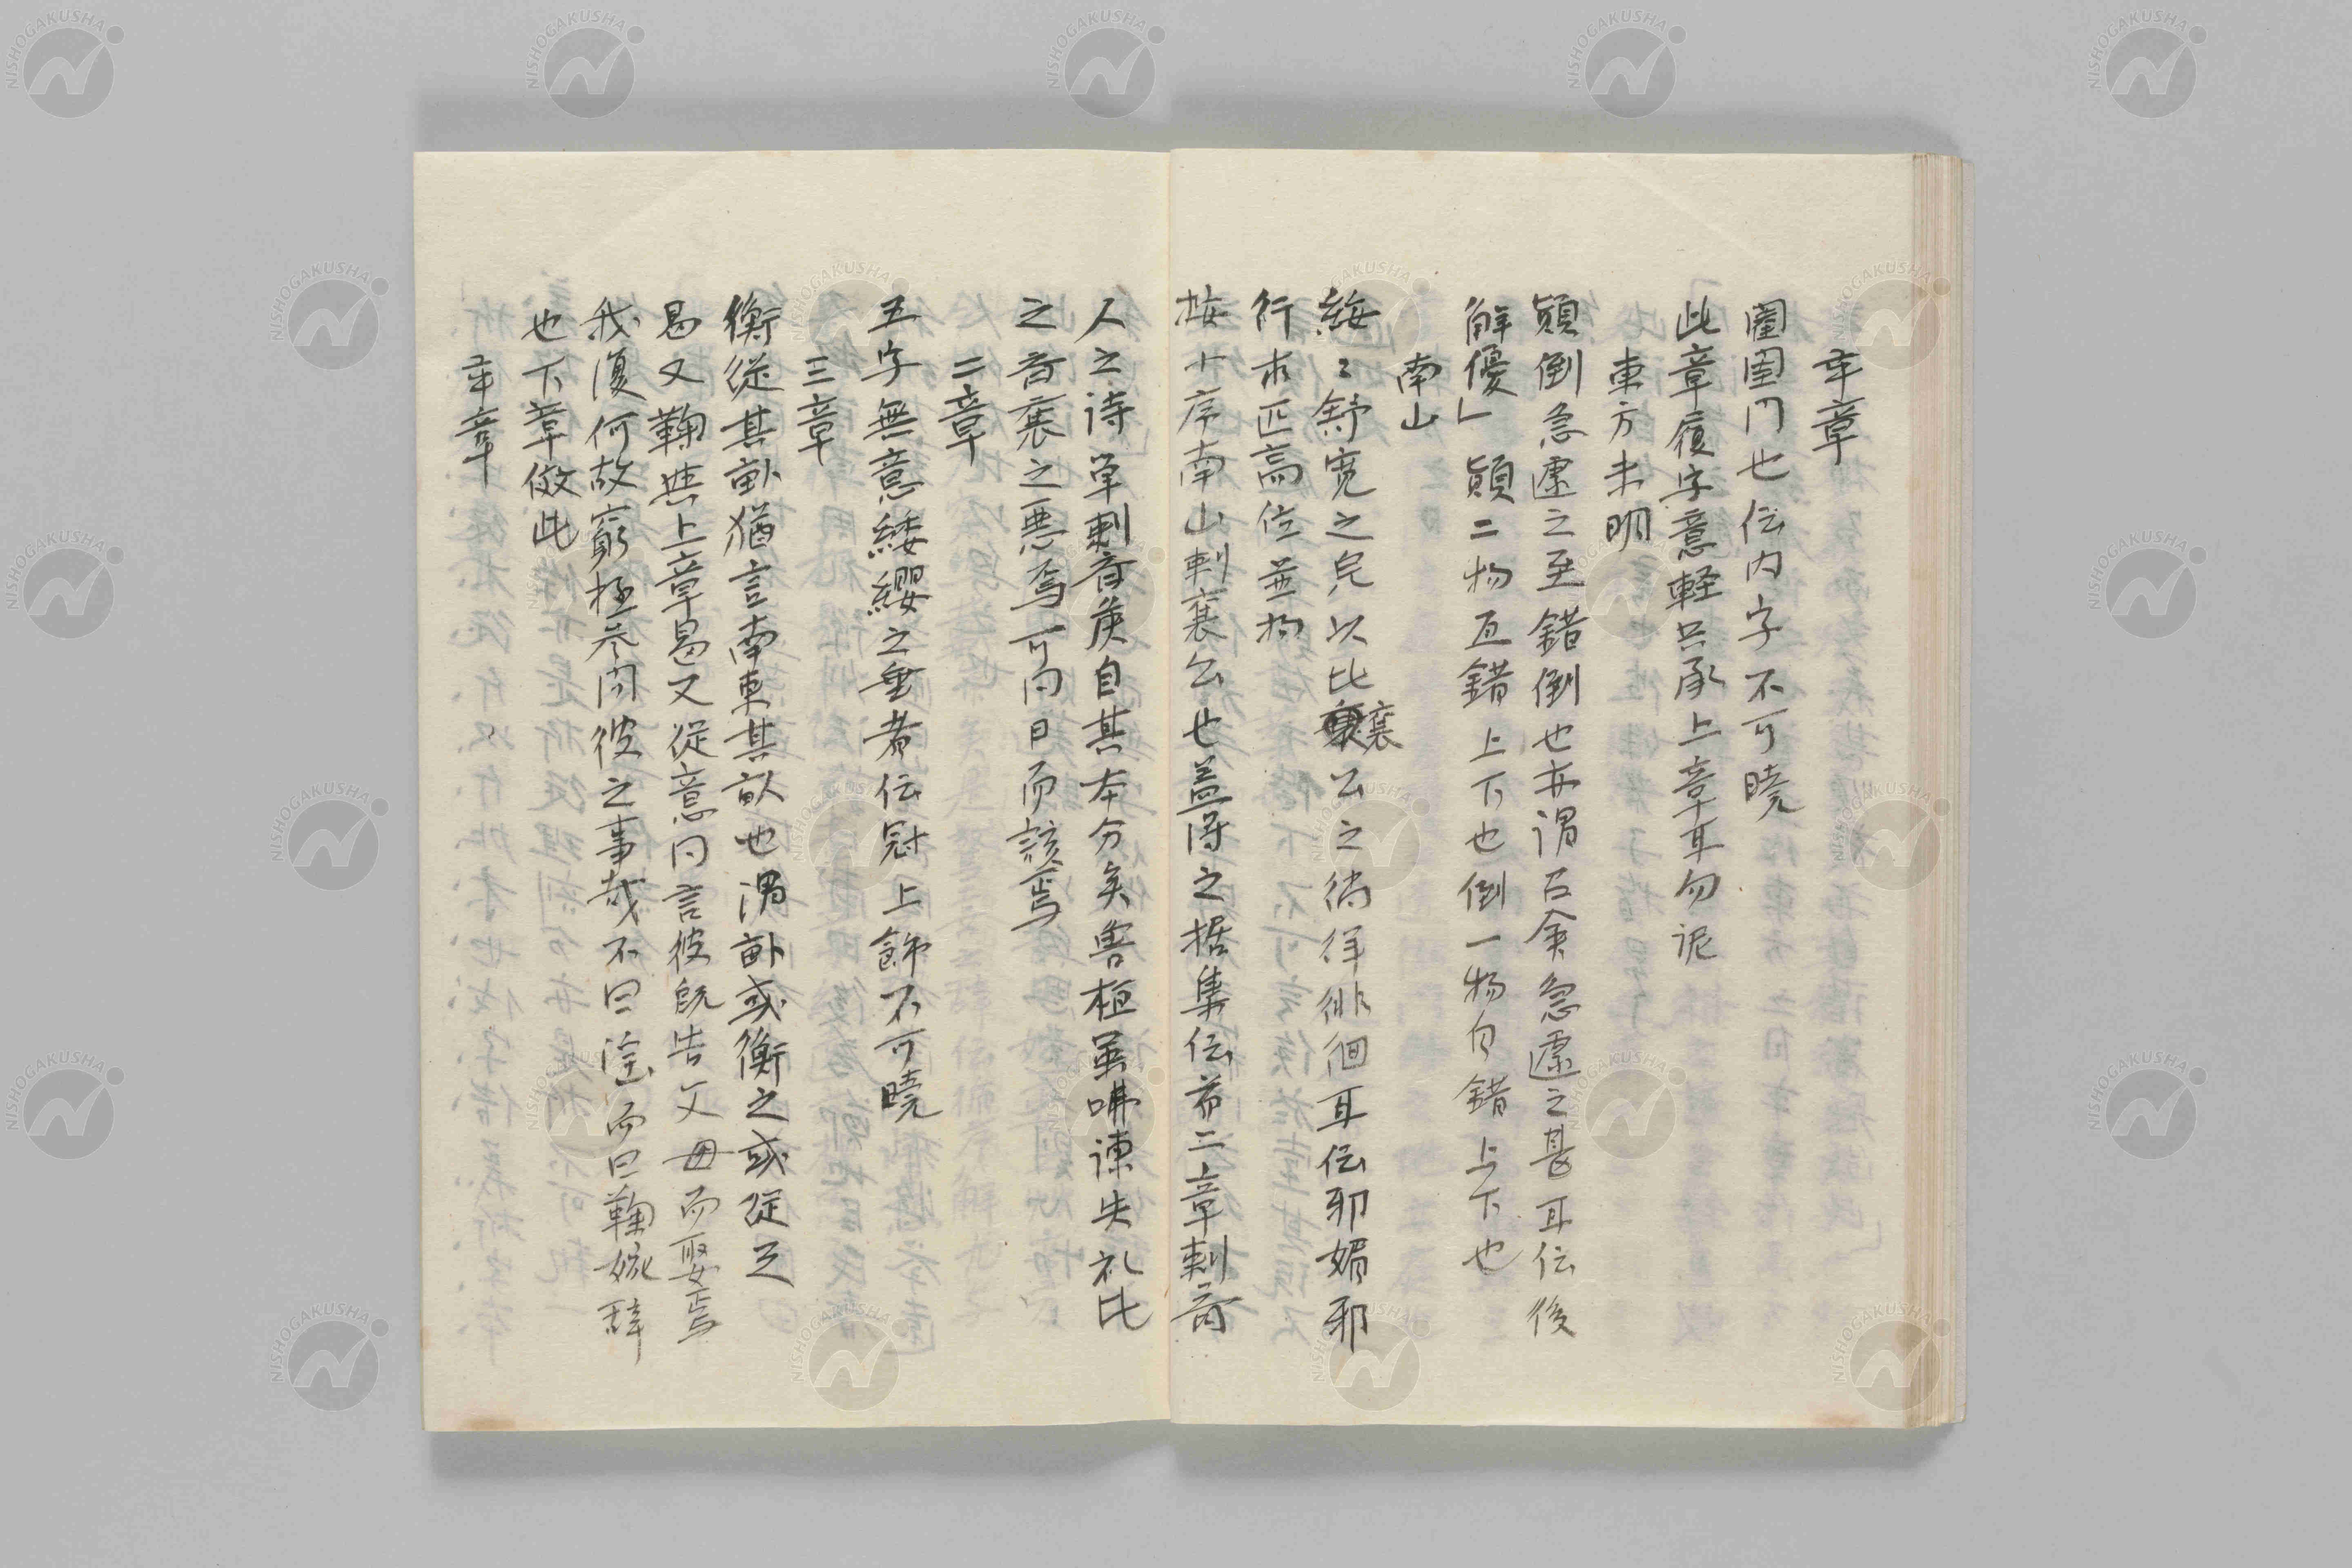 卒章
闥闺門也伝内字不可暁
此章履字意軽只承上章耳勿泥
東方未明
顛倒急遽之至錯倒也亦謂召余急遽之甚耳伝後
解優」顛二物互錯上下也倒一物自錯上下也
南山
綏〻舒寛之皃以比襄公之徜徉徘徊耳伝邪媚邪
行求匹高位並抅
按小序南山刺襄公也蓋得之据集伝前二章刺斉
人之詩单刺斉侯自其本分矣害桓虽咈諫失礼比
之斉襄之悪焉可同日而該焉
二章
五字無意緌纓之垂者伝冠上飾不可暁
三章
衡従其畝猶言南東其畝也謂畝或衡之或従之
曷又鞠与上章曷又従意同言彼既告父母而娶焉
我復何故窮極系問彼之事哉不曰淫而曰鞠婉辞
也下章倣此
卒章
NISHOGAKUSHA